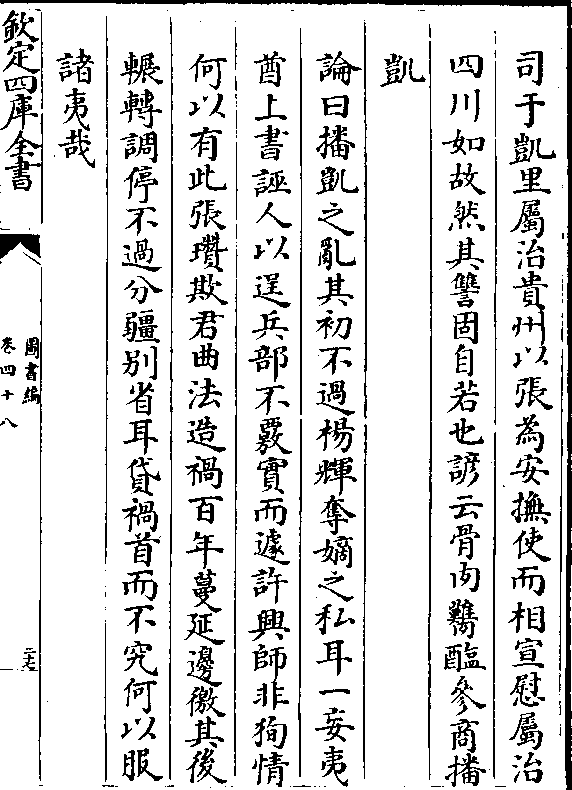 司于凱里屬治貴州以張為安撫使而相宣慰屬治
四川如故然其讐固自若也諺云骨肉鸛醢參商播
凱
論曰播凱之亂其初不過楊輝奪嫡之私耳一妄夷
酋上書誣人以逞兵部不覈實而遽許興師非狥情
何以有此張瓚欺君曲法造禍百年蔓延邊徼其後
輾轉調停不過分疆別省耳貸禍首而不究何以服
諸夷哉
欽定四庫全書
圖書編
卷四十八